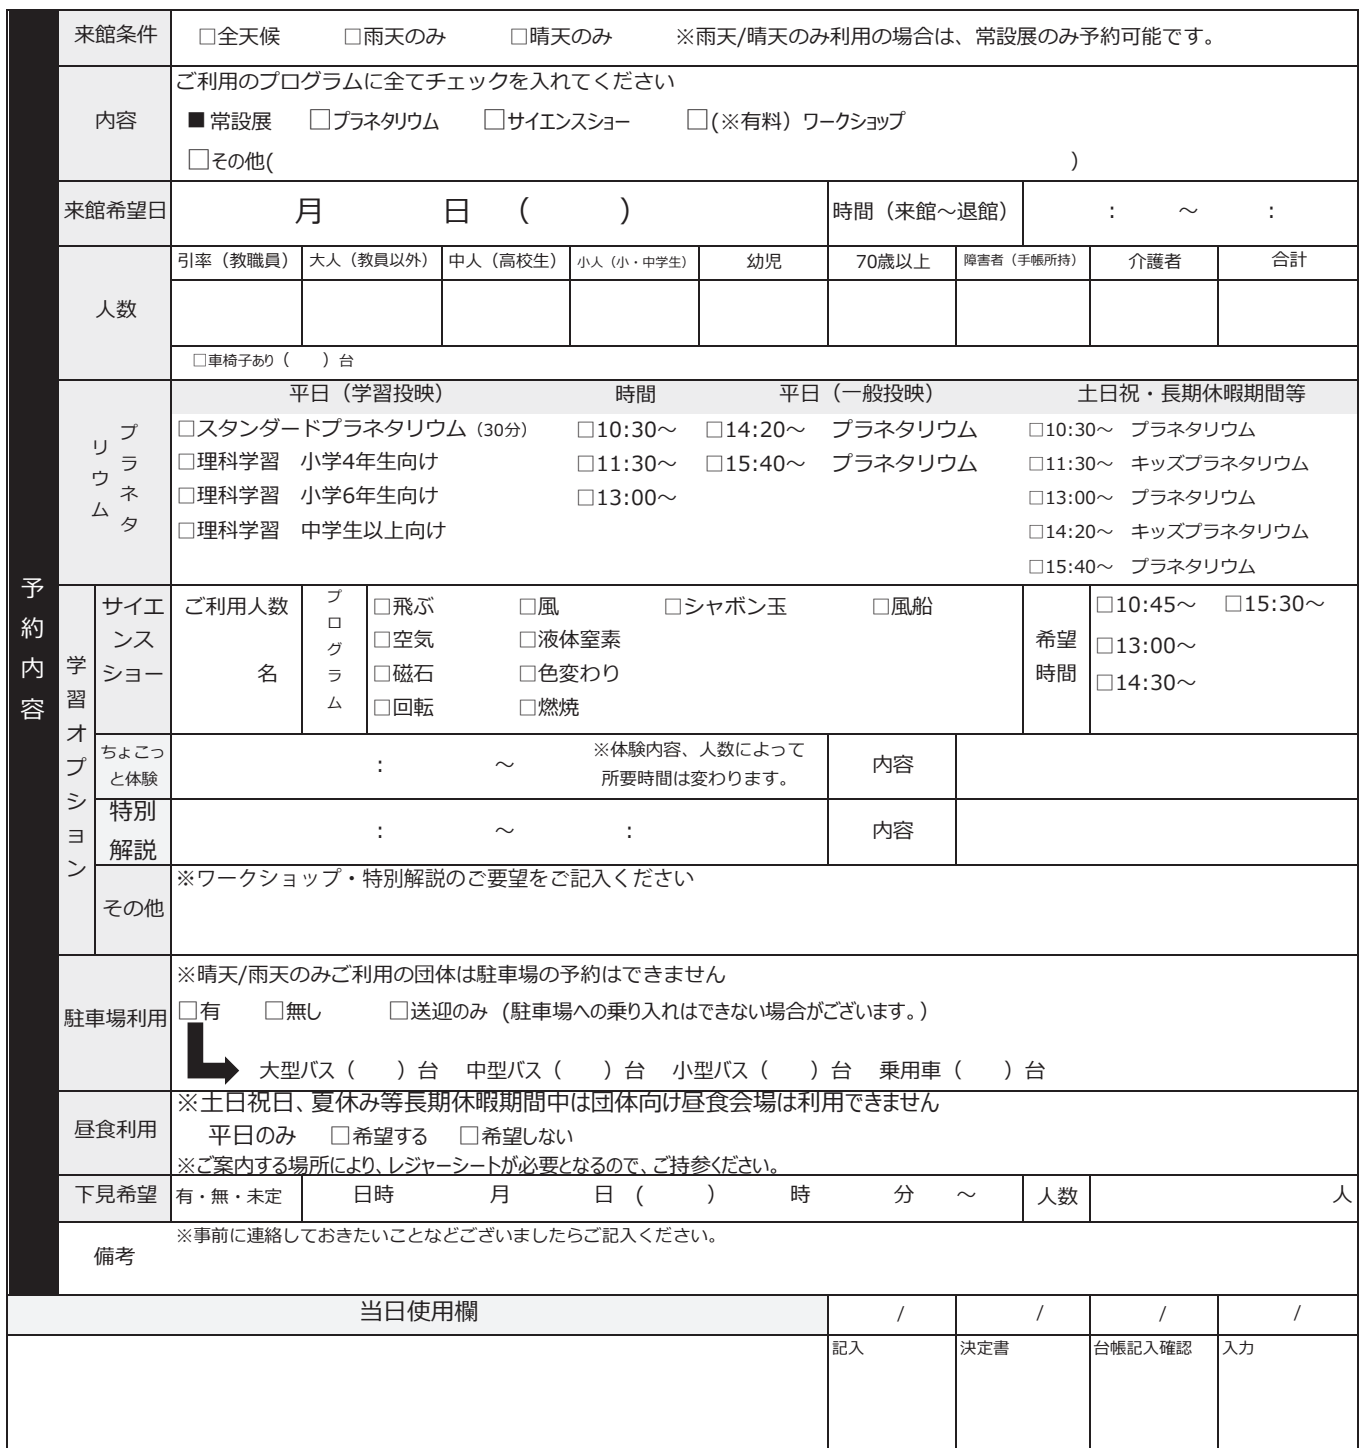 予約内容
来館条件 □全天候 □雨天のみ □晴天のみ ※雨天/晴天のみ利用の場合は、常設展のみ予約可能です。
内容
ご利用のプログラムに全てチェックを入れてください
■常設展 □プラネタリウム □サイエンスショー □(※有料）ワークショップ
□その他( )
来館希望日 月 日 （ ） 時間（来館～退館） : ～ :
人数
引率（教職員） 大人（教員以外） 中人（高校生） 小人（小・中学生） 幼児 70歳以上 障害者（手帳所持） 介護者 合計
□車椅子あり（ ）台
プラネタリウム
平日（学習投映） 時間 平日（一般投映） 土日祝・長期休暇期間等
□スタンダードプラネタリウム（30分） □10:30～ □14:20～ プラネタリウム □10:30～ プラネタリウム
□理科学習 小学4年生向け □11:30～ □15:40～ プラネタリウム □11:30～ キッズプラネタリウム
□理科学習 小学6年生向け □13:00～ □13:00～ プラネタリウム
□理科学習 中学生以上向け □14:20～ キッズプラネタリウム
□15:40～ プラネタリウム
学習オプション
サイエンスショー
ご利用人数
名
プログラム
□飛ぶ □風 □シャボン玉 □風船
□空気 □液体窒素
□磁石 □色変わり
□回転 □燃焼
希望時間
□10:45～ □15:30～
□13:00～
□14:30～
ちょこっと体験 : ～ ※体験内容、人数によって
所要時間は変わります。 内容
特別解説 : ～ : 内容
その他
※ワークショップ・特別解説のご要望をご記入ください
駐車場利用
※晴天/雨天のみご利用の団体は駐車場の予約はできません
□有 □無し □送迎のみ (駐車場への乗り入れはできない場合がございます。）
大型バス（ ）台 中型バス（ ）台 小型バス（ ）台 乗用車（ ）台
昼食利用
※土日祝日、夏休み等長期休暇期間中は団体向け昼食会場は利用できません
平日のみ □希望する □希望しない
※ご案内する場所により、レジャーシートが必要となるので、ご持参ください。
下見希望 有・無・未定 日時 月 日（ ） 時 分 ～ 人数 人
備考
※事前に連絡しておきたいことなどございましたらご記入ください。
当日使用欄 / / / /
記入 決定書 台帳記入確認 入力